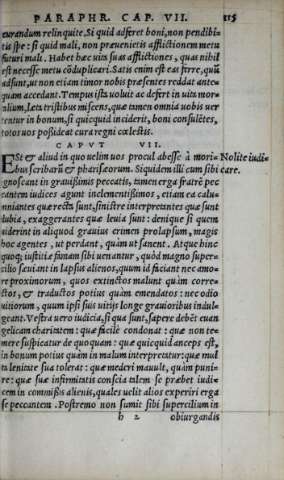 PARAPHR. CAP. VII. 115
curandum relinquite. Si quid adferet boni, non pendibi-
tis spe: si quid mali, non præuenietis afflictionem metu
futuri mali. Habet hæc uita suas afflictiones, quas nihil
est necesse metu cōduplicari. Satis enim est eas ferre, quū
adsunt, ut non etiam timor nobis præsentes reddat ante-
quam accedant. Tempus ista uoluit ac defert in uita mor-
talium, læta tristibus miscens, quæ tamen omnia uobis uer
tentur in bonum, si quicquid inciderit, boni consulētes,
totos uos possideat cura regni cœlestis.
CAPVT VII.
ESt & aliud in quo uelim uos procul abesse à mori- Nolite iudi-
bus scribarū & pharisæorum. Siquidem illi cum sibi care.
ignoscant in grauissimis peccatis, tamen erga fratrē pec
cantem iudices agunt inclementissimos, etiam ea calu-
mniantes quæ recta sunt, sinistre interpretantes quæ sunt
dubia, exaggerantes quæ leuia sunt: denique si quem
uiderint in aliquod grauius crimen prolapsum, magis
hoc agentes, ut perdant, quàm ut sanent. Atque hinc
quoq; iustitiæ famam sibi uenantur, quòd magno super-
cilio sæuiant in lapsus alienos, quum id faciant nec amo-
re proximorum, quos extinctos malunt quàm corre-
ctos, & traductos potius quàm emendatos: nec odio
uitiorum, quum ipsi suis uitijs longe grauioribus indul-
geant. Vestra uero iudicia, si qua sunt, sapere debēt euan
gelicam charitatem: quæ facilè condonat: quæ non te-
mere suspicatur de quoquam: quæ quicquid anceps est,
in bonum potius quàm in malum interpretatur: quæ mul
ta lenitate sua tolerat: quæ mederi mauult, quàm puni-
re: quæ suæ infirmitatis conscia talem se præbet iudi-
cem in commissis alienis, quales uelit alios experiri erga
se peccantem. Postremo non sumit sibi supercilium in
h 2 obiurgandis